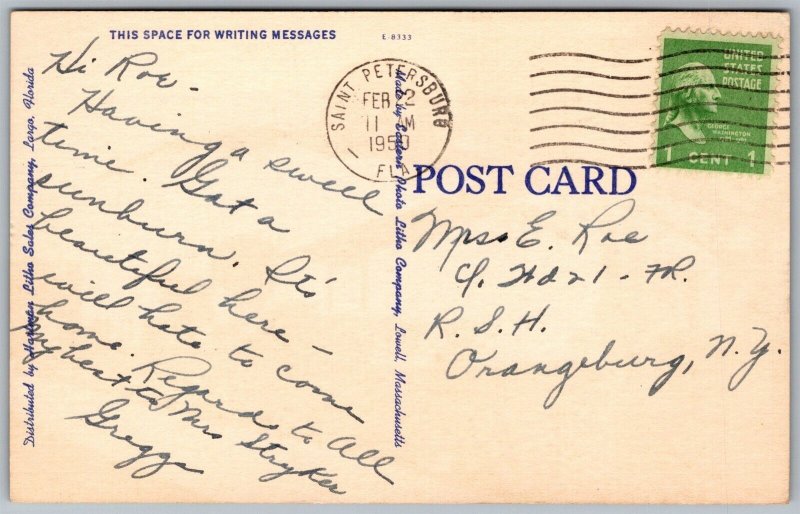 THIS SPACE FOR WRITING MESSAGES
E-8333
Hi Roe -
Having a swell
time. Got a
sunburn. It's
beautiful here -
will hate to come
home. Regards to all
my best to Mrs Stryker
Greggs
Distributed by Hartman Litho Sales Company, Largo, Florida
Made by Eastern Photo Litho Company, Lowell, Massachusetts
SAINT PETERSBURG
FEB 2
11 AM
1950
FLA
UNITED
STATES
POSTAGE
GEORGE
WASHINGTON
1 CENT 1
POST CARD
Mrs. E. Roe
R.S.H.
Orangeburg, N.Y.